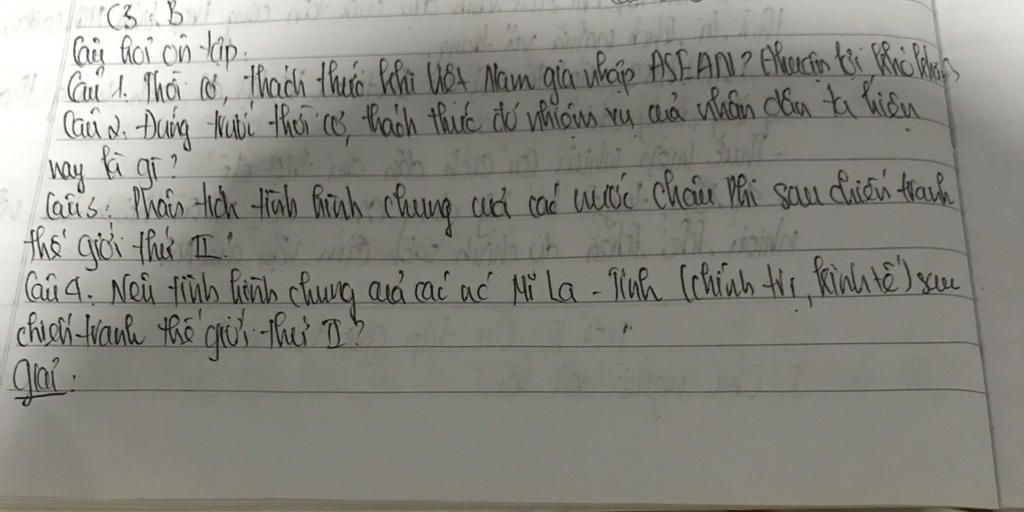 C3: B
Câu hỏi ôn tập:
Câu 1. Thời cơ, thách thức khi Việt Nam gia nhập ASEAN? (Thuận lợi khó khăn)
Câu 2. Đứng trước thời cơ, thách thức đó nhiệm vụ của nhân dân ta hiện
nay là gì?
Câu 3: Phân tích tình hình chung của các nước châu Phi sau chiến tranh
thế giới thứ II?
Câu 4. Nêu tình hình chung của các nc Mĩ La - Tinh (chính trị, kinh tế) sau
chiến tranh thế giới thứ II?
giải: